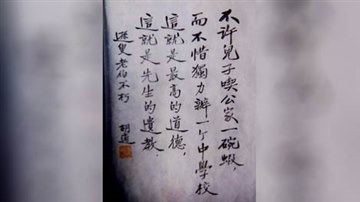 不許兒子喫公家一碗飯，
而不惜獨力辦一个中學校
這就是最高的道德，
這就是先生的遺教．
叟老伯不朽
胡適